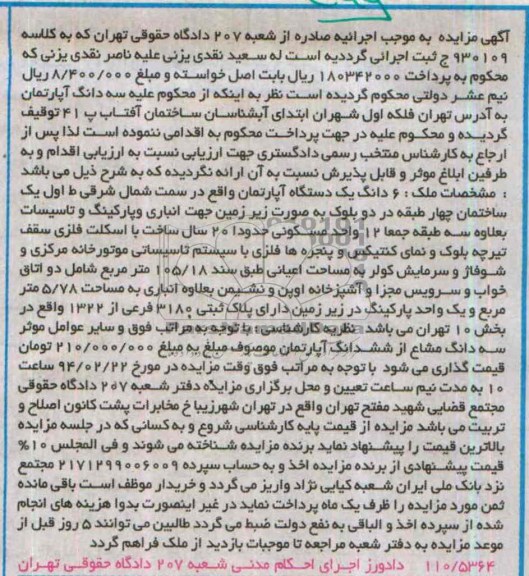 آگهی مزایده به موجب اجرائیه صادره از شعبه ۲۰۷ دادگاه حقوقی تهران که به کلاسه
۹۳۰۱۰۹ ج ثبت اجرائی گرددیه است له سعید نقدی یزنی علیه ناصر نقدی یزنی که
محکوم به پرداخت ۱۸۰۳۴۲۰۰۰ ریال بابت اصل خواسته و مبلغ ۸/۴۰۰/۰۰۰ ریال
نیم عشر دولتی محکوم گردیده است نظر به اینکه از محکوم علیه سه دانگ آپارتمان
به آدرس تهران فلکه اول شهران ابتدای آبشناسان ساختمان آفتاب پ ۴۱ توقیف
گردیده و محکوم علیه در جهت پرداخت محکوم به اقدامی ننموده است لذا پس از
ارجاع به کارشناس منتخب رسمی دادگستری جهت ارزیابی نسبت به ارزیابی اقدام و به
طرفین ابلاغ موثر و قابل پذیرش نسبت به آن ارائه نگردیده که به شرح ذیل می باشد
: مشخصات ملک : ۶ دانگ یک دستگاه آپارتمان واقع در سمت شمال شرقی ط اول یک
ساختمان چهار طبقه در دو بلوک به صورت زیر زمین جهت انباری وپارکینگ و تاسیسات
بعلاوه سه طبقه جمعا ۱۲ واحد مسکونی حدودا ۲۰ سال ساخت با اسکلت فلزی سقف
تیرچه بلوک و نمای کنتیکس و پنجره ها فلزی با سیستم تاسیساتی موتورخانه مرکزی و
شوفاژ و سرمایش کولر به مساحت اعیانی طبق سند ۱۰۵/۱۸ متر مربع شامل دو اتاق
خواب و سرویس مجزا و آشپزخانه اوپن و نشیمن بعلاوه انباری به مساحت ۵/۷۸ متر
مربع و یک واحد پارکینگ در زیر زمین دارای پلاک ثبتی ۳۱۸۰ فرعی از ۱۳۲۲ واقع در
بخش ۱۰ تهران می باشد . نظریه کارشناسی : با توجه به مراتب فوق و سایر عوامل موثر
سه دانگ مشاع از ششدانگ آپارتمان موصوف مبلغ به مبلغ ۲۱۰/۰۰۰/۰۰۰ تومان
قیمت گذاری می شود با توجه به مراتب فوق وقت مزایده در مورخ ۹۴/۰۲/۲۲ ساعت
۱۰ به مدت نیم ساعت تعیین و محل برگزاری مزایده دفتر شعبه ۲۰۷ دادگاه حقوقی
مجتمع قضایی شهید مفتح تهران واقع در تهران شهرزیبا خ مخابرات پشت کانون اصلاح و
تربیت می باشد مزایده از قیمت پایه کارشناسی شروع و به کسانی که در جلسه مزایده
بالاترین قیمت را پیشنهاد نماید برنده مزایده شناخته می شوند و فی المجلس ۱۰%
قیمت پیشنهادی از برنده مزایده اخذ و به حساب سپرده ۲۱۷۱۲۹۹۰۰۶۰۰۹ مجتمع
نزد بانک ملی ایران شعبه کیایی نژاد واریز می گردد و خریدار موظف است باقی مانده
ثمن مورد مزایده را ظرف یک ماه پرداخت نماید در غیر اینصورت بدوا هزینه های انجام
شده از سپرده اخذ و الباقی به نفع دولت ضبط می گردد طالبین می توانند ۵ روز قبل از
موعد مزایده به دفتر شعبه مراجعه تا موجبات بازدید از ملک فراهم گردد
۱۱۰/۵۳۶۴ دادورز اجرای احکام مدنی شعبه ۲۰۷ دادگاه حقوقی تهران